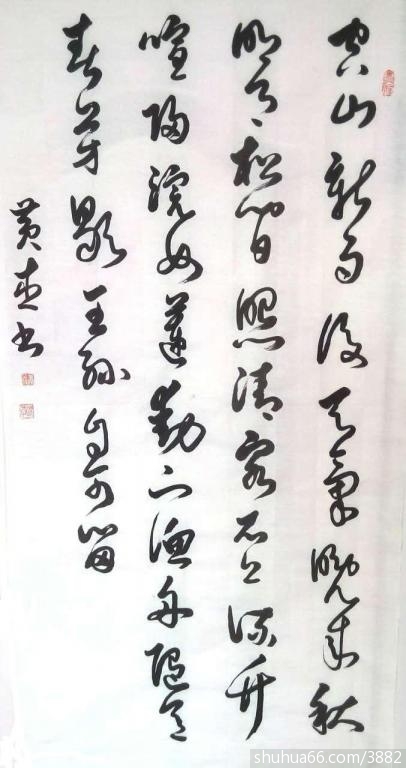 空山新雨後天氣晚來秋
明月松間照清泉石上流竹
喧歸浣女蓮動下漁舟隨意
春芳歇王孫自可留
黄書
shuhua66.com/3882